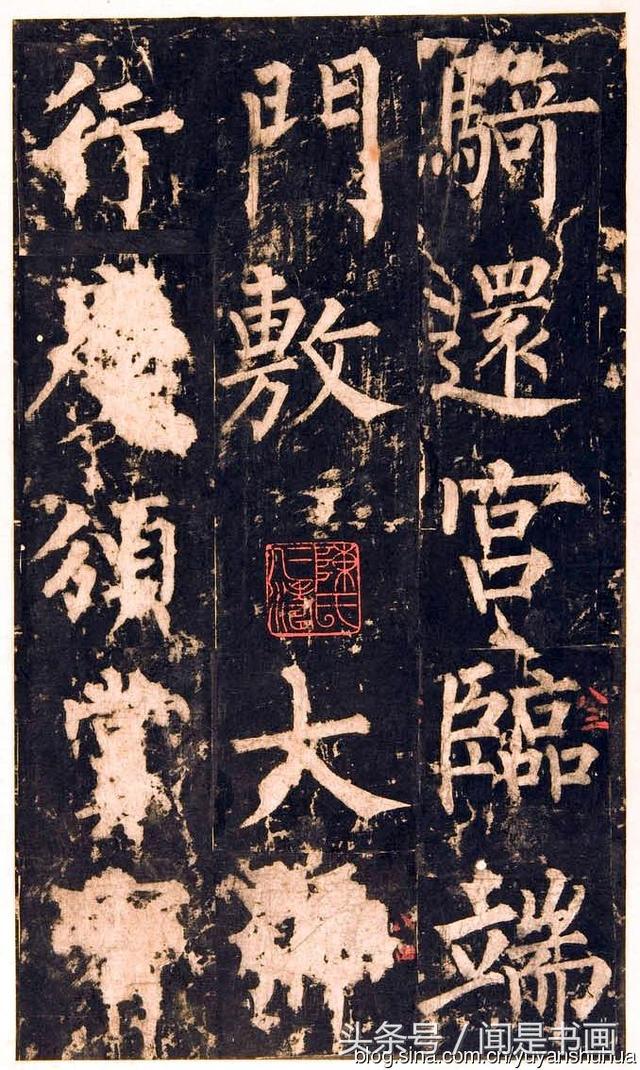 騎還宮臨端
門敷大
行頒賞
陳氏
仁濤
头条号 / 闻是书画
blog.sina.com.cn/yuyanshuhua